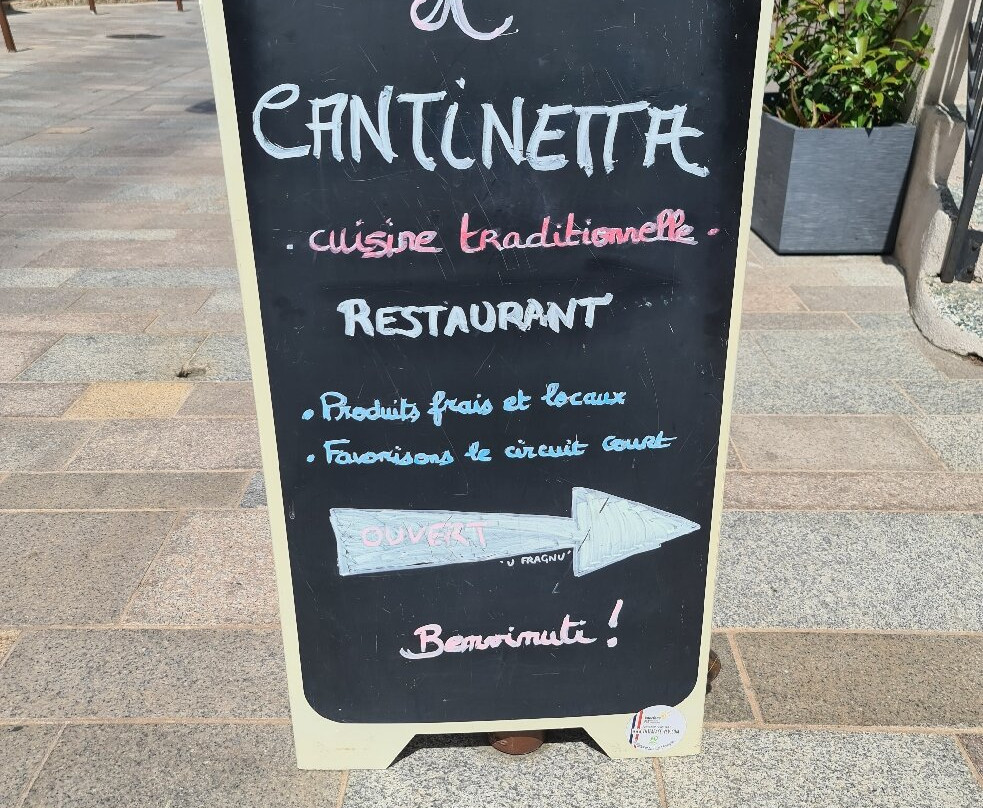 CANTINETTA
· cuisine traditionnelle ·
RESTAURANT
• Produits frais et locaux
• Favorisons le circuit court
OUVERT
'U FRAGNU'
Benvinuti !